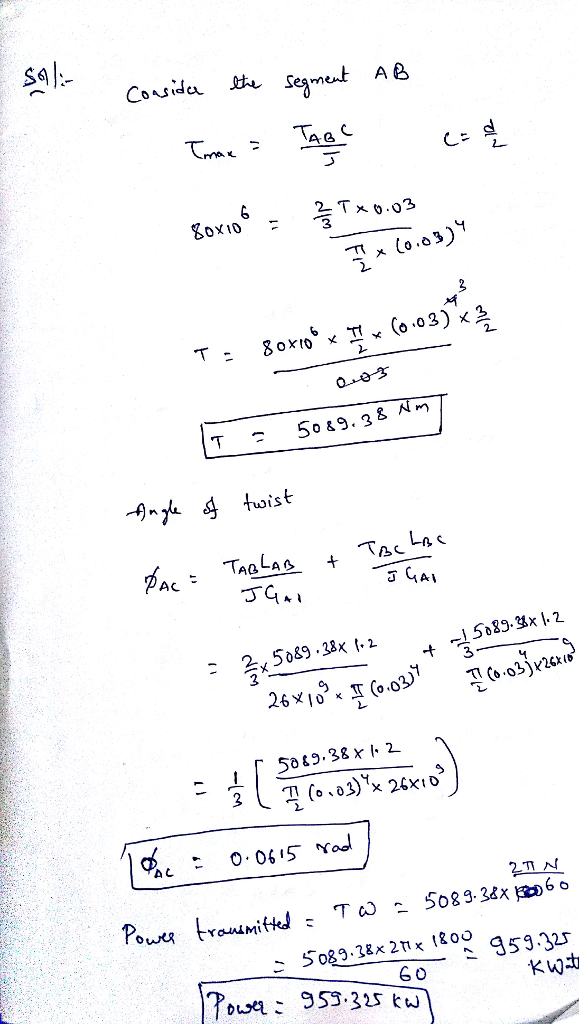 Sol:-
Consider the segment AB
τmax = TAB C / J    C = d/2
80x10^6 = 2/3 T x 0.03 / π/2 x (0.03)^4
T = 80x10^6 x π/2 x (0.03)^3 x 3/2 / 0.03
T = 5089.38 Nm
Angle of twist
ØAC = TAB LAB / J GAl + TBC LBC / J GAl
= 2/3 x 5089.38x 1.2 / 26x10^9 x π/2 (0.03)^4 + -1/3 5089.38x 1.2 / π/2 (0.03)^4 x26x10^9
= 1/3 [ 5089.38x 1.2 / π/2 (0.03)^4 x 26x10^9 )
ØAC = 0.0615 rad
Power transmitted = T ω = 5089.38x 2πN / 60
= 5089.38x2πx 1800 / 60 = 959.325 KWatt
Power = 959.325 KW